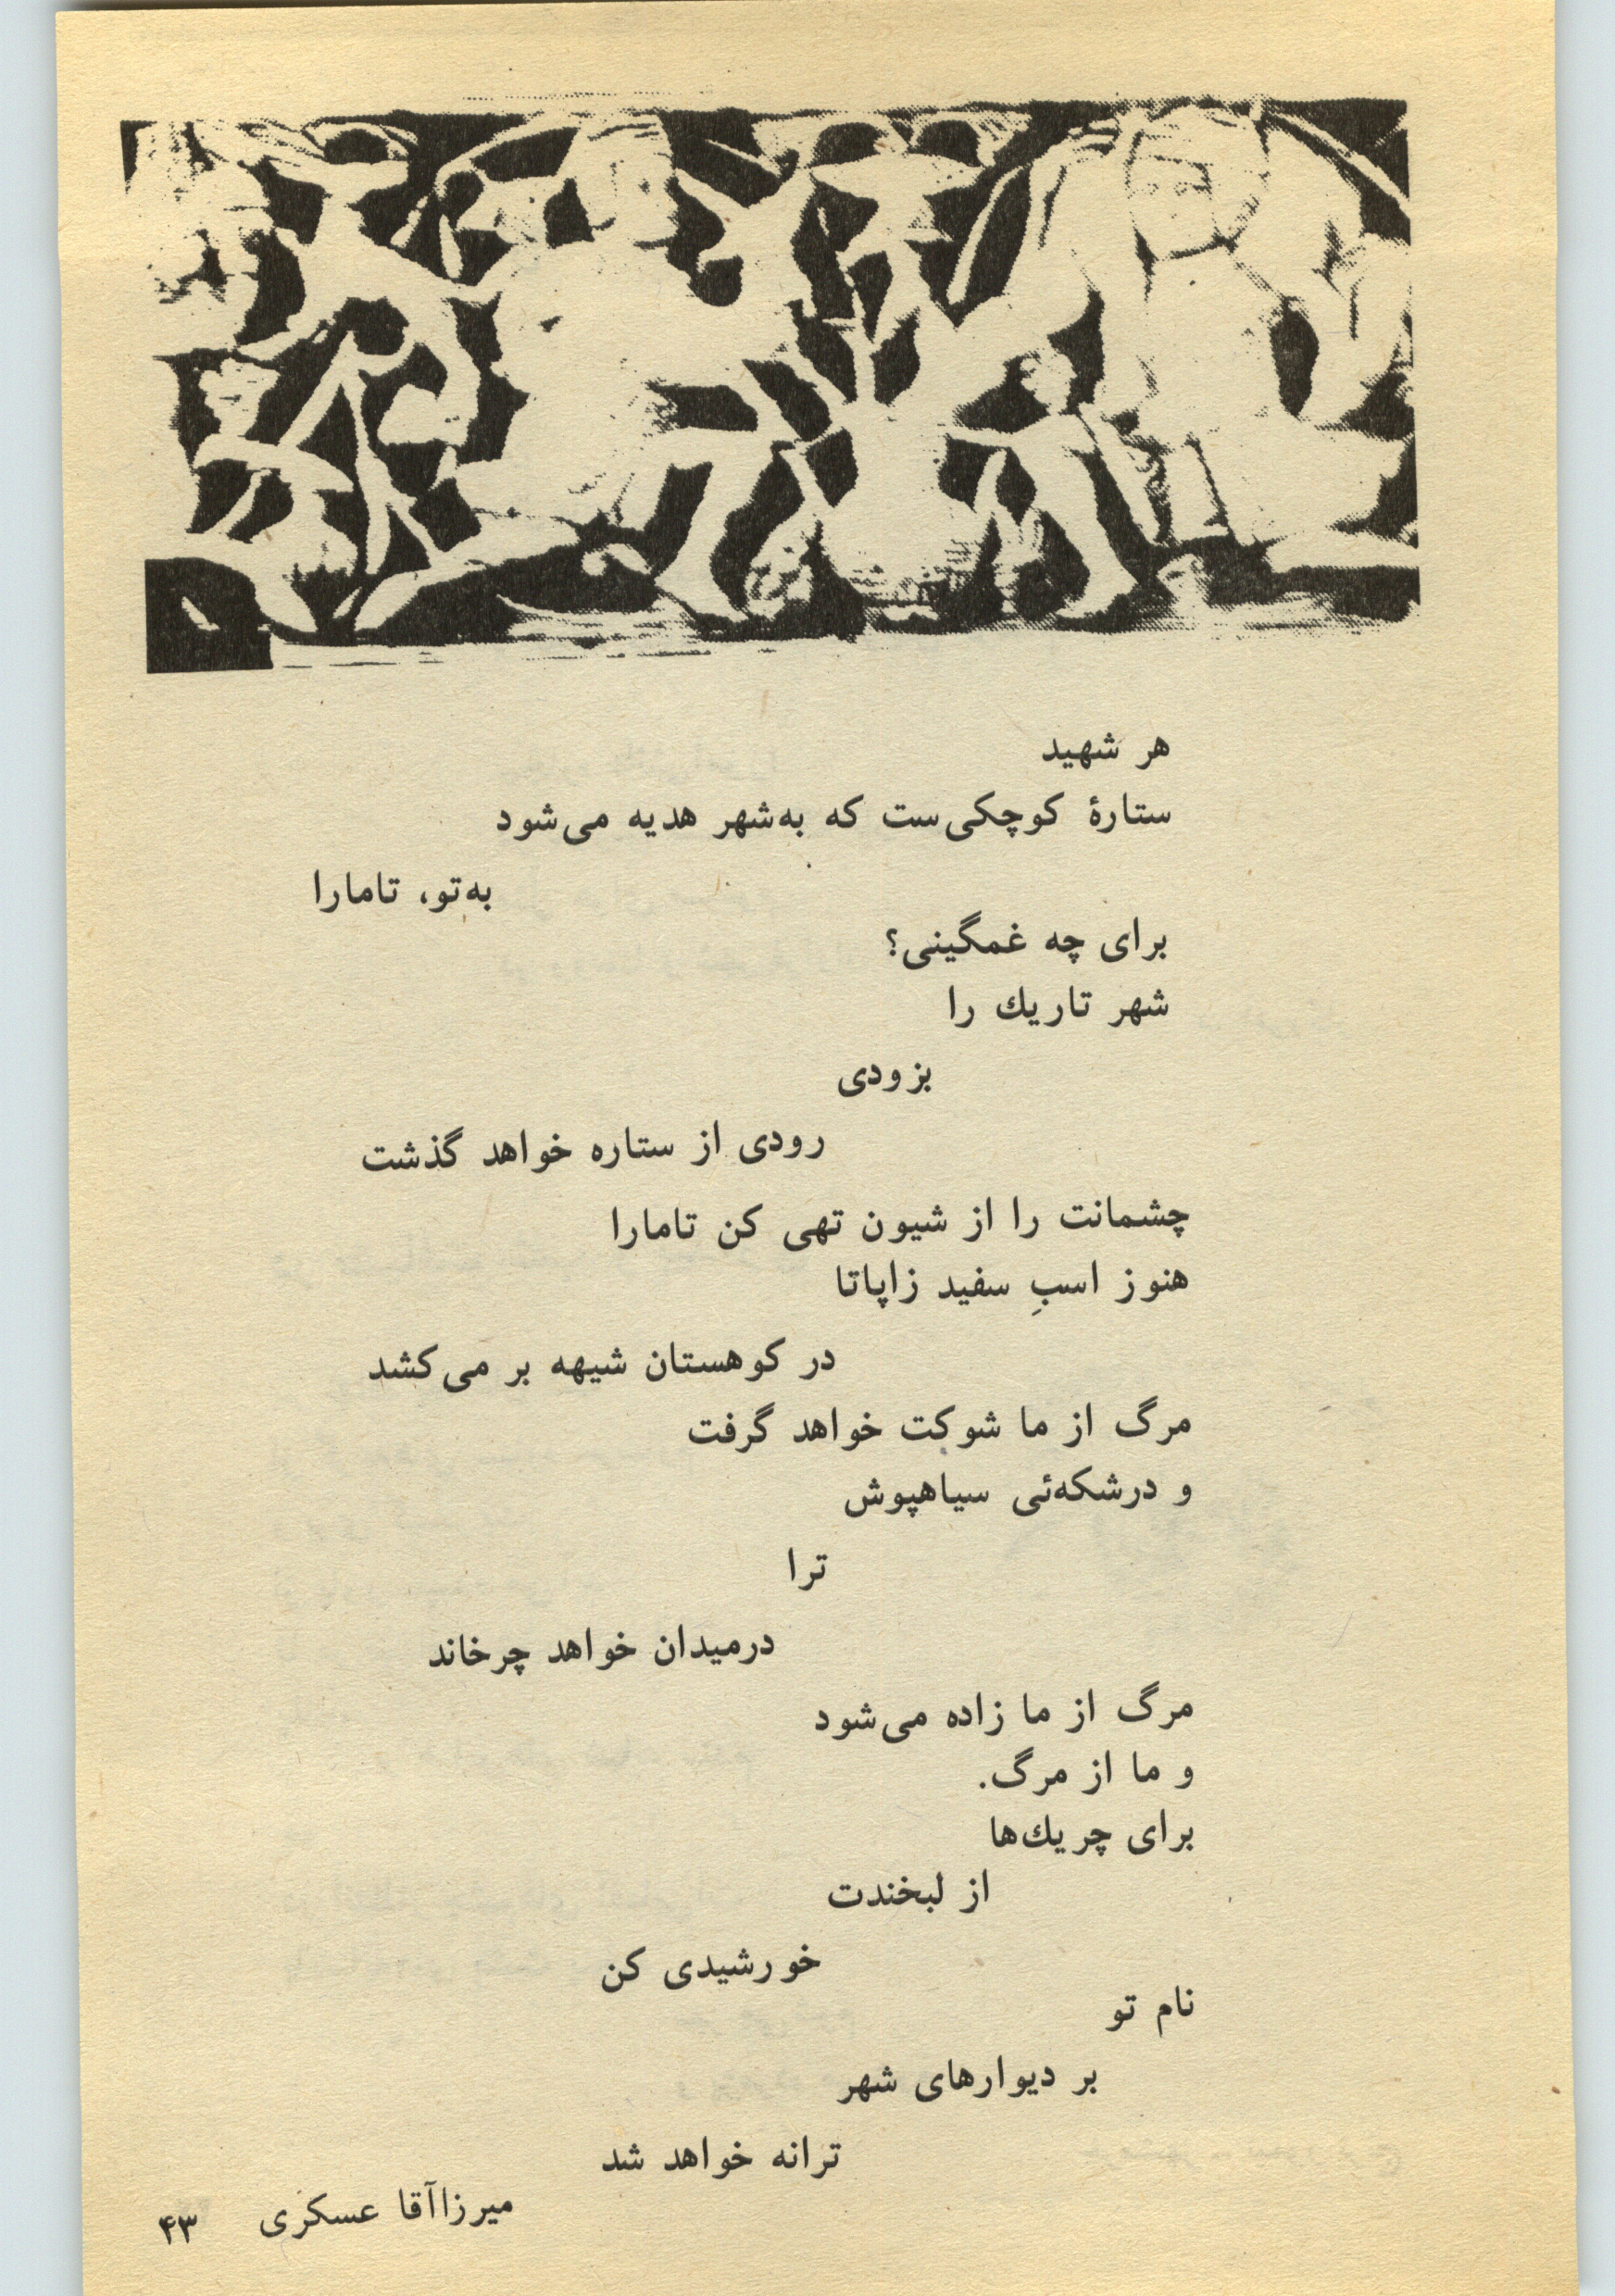 هر شهید
ستارهٔ کوچکی‌ست که به‌شهر هدیه می‌شود
به‌تو، تامارا
برای چه غمگینی؟
شهر تاریك را
بزودی
رودی از ستاره خواهد گذشت
چشمانت را از شیون تهی کن تامارا
هنوز اسبِ سفید زاپاتا
در کوهستان شیهه بر می‌کشد
مرگ از ما شوکت خواهد گرفت
و درشکه‌ئی سیاهپوش
ترا
درمیدان خواهد چرخاند
مرگ از ما زاده می‌شود
و ما از مرگ.
برای چریك‌ها
از لبخندت
خورشیدی کن
نام تو
بر دیوارهای شهر
ترانه خواهد شد
میرزاآقا عسکری
۴۳